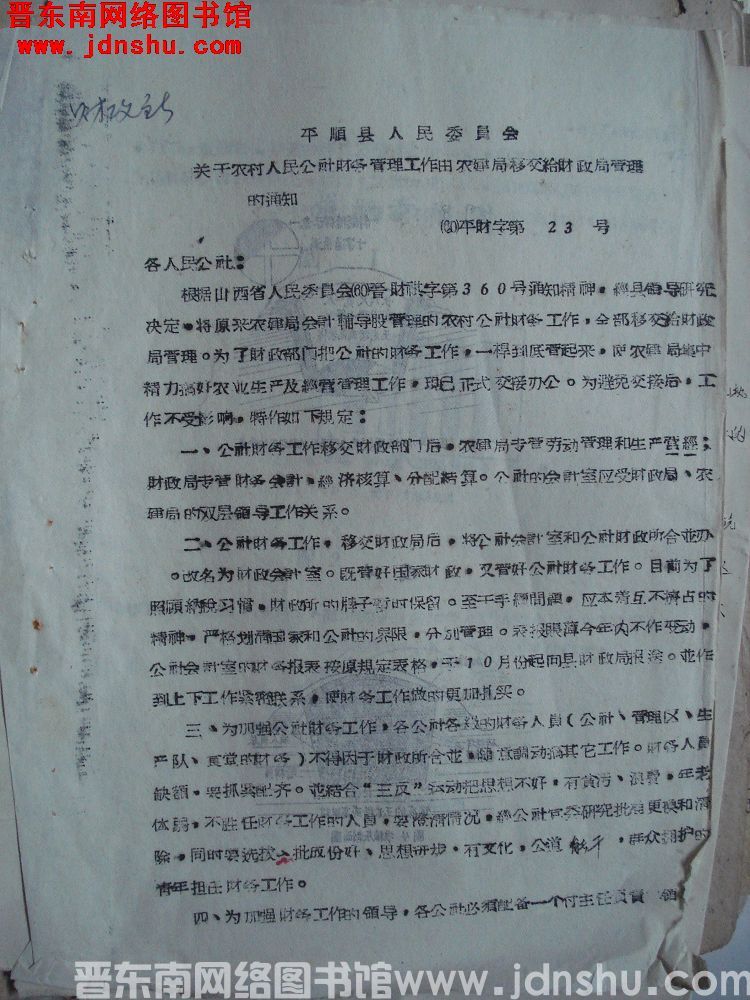 晋东南网络图书馆
www.jdnshu.com
平順县人民委員会
关于农村人民公社財务管理工作由农建局移交給財政局管理
的通知
(60)平財字第 23 号
各人民公社：
根据山西省人民委員会(60)晋財祺字第360号通知精神，經县領导研究
决定，将原来农建局会計輔导股管理的农村公社財务工作，全部移交給財政
局管理。为了財政部門把公社的財务工作，一桿到底管起来，使农建局集中
精力搞好农业生产及經营管理工作，現已正式交接办公。为避免交接后，工
作不受影响，特作如下規定：
一、公社財务工作移交財政部門后，农建局专管劳动管理和生产管經；
財政局专管財务会計，經济核算、分配結算。公社的会計室应受財政局、农
建局的双层領导工作关系。
二、公社財务工作，移交財政局后，将公社会計室和公社財政所合並办
，改名为財政会計室。既管好国家財政，又管好公社財务工作。目前为了
照顧納稅习慣，財政所的牌子暫时保留。至于手續問題，应本着互不侵占的
精神，严格划清国家和公社的界限，分别管理。表报賬簿今年内不作变动，
公社会計室的財务报表按原規定表格，于10月份起向县財政局报送。並作
到上下工作紧密联系，使財务工作做的更加扎实。
三、为加强公社財务工作，各公社各級的財务人員（公社、管理区、生
产队、食堂的財务）不得因于財政所合並，隨意調动搞其它工作。財务人員
缺額，要抓紧配齐。並結合“三反”运动把思想不好，有貪污、浪費，年老
体弱，不胜任財务工作的人員，要清清情况，經公社党委研究批准更換和清
除，同时要选拔一批成份好、思想进步，有文化，公道能干，群众拥护的
青年担任財务工作。
四、为加强財务工作的領导，各公社必須配备一个付主任負責
晋东南网络图书馆www.jdnshu.com